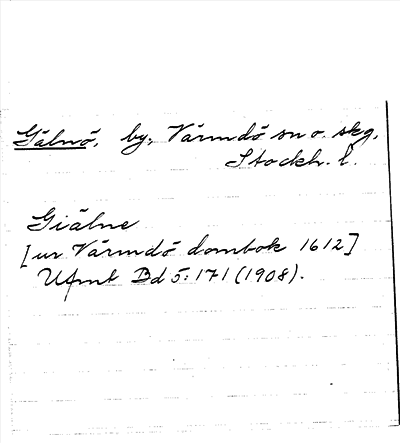 Gälnö, by, Värmdö sn o. skg,
Stockh. l.
Giälne
[ur Värmdö dombok 1612]
Ufmt Bd 5: 171 (1908).